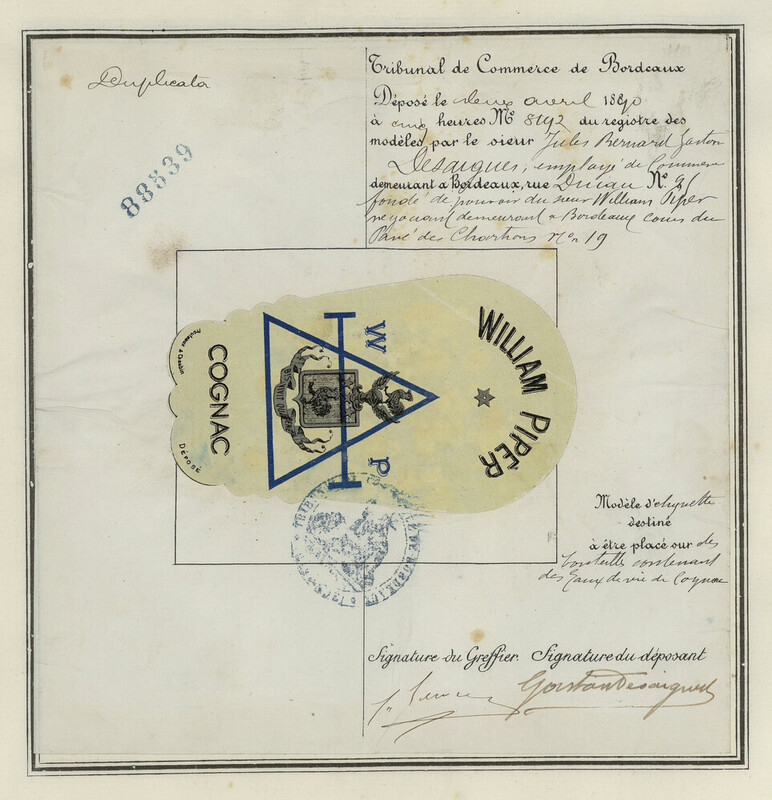 Duplicata
88839
Tribunal de Commerce de Bordeaux
Déposé le deux avril 1890
à cinq heures No 8192 du registre des
modèles par le sieur Jules Bernard Gaston
Desaigues, employé de Commerce
demeurant a Bordeaux, rue Ducau No 91
fondé de pouvoir du sieur William Piper
négociant demeurant a Bordeaux cours du
Pavé des Chartrons No 19
WILLIAM PIPER
W P
COGNAC
DÉPOSÉ
Modèle d'étiquette
destiné
à être placé sur des
bouteilles contenant
des Eaux de vie de Cognac
TRIBUNAL DE BORDEAUX
Signature du Greffier. Signature du déposant
Gaston Desaigues